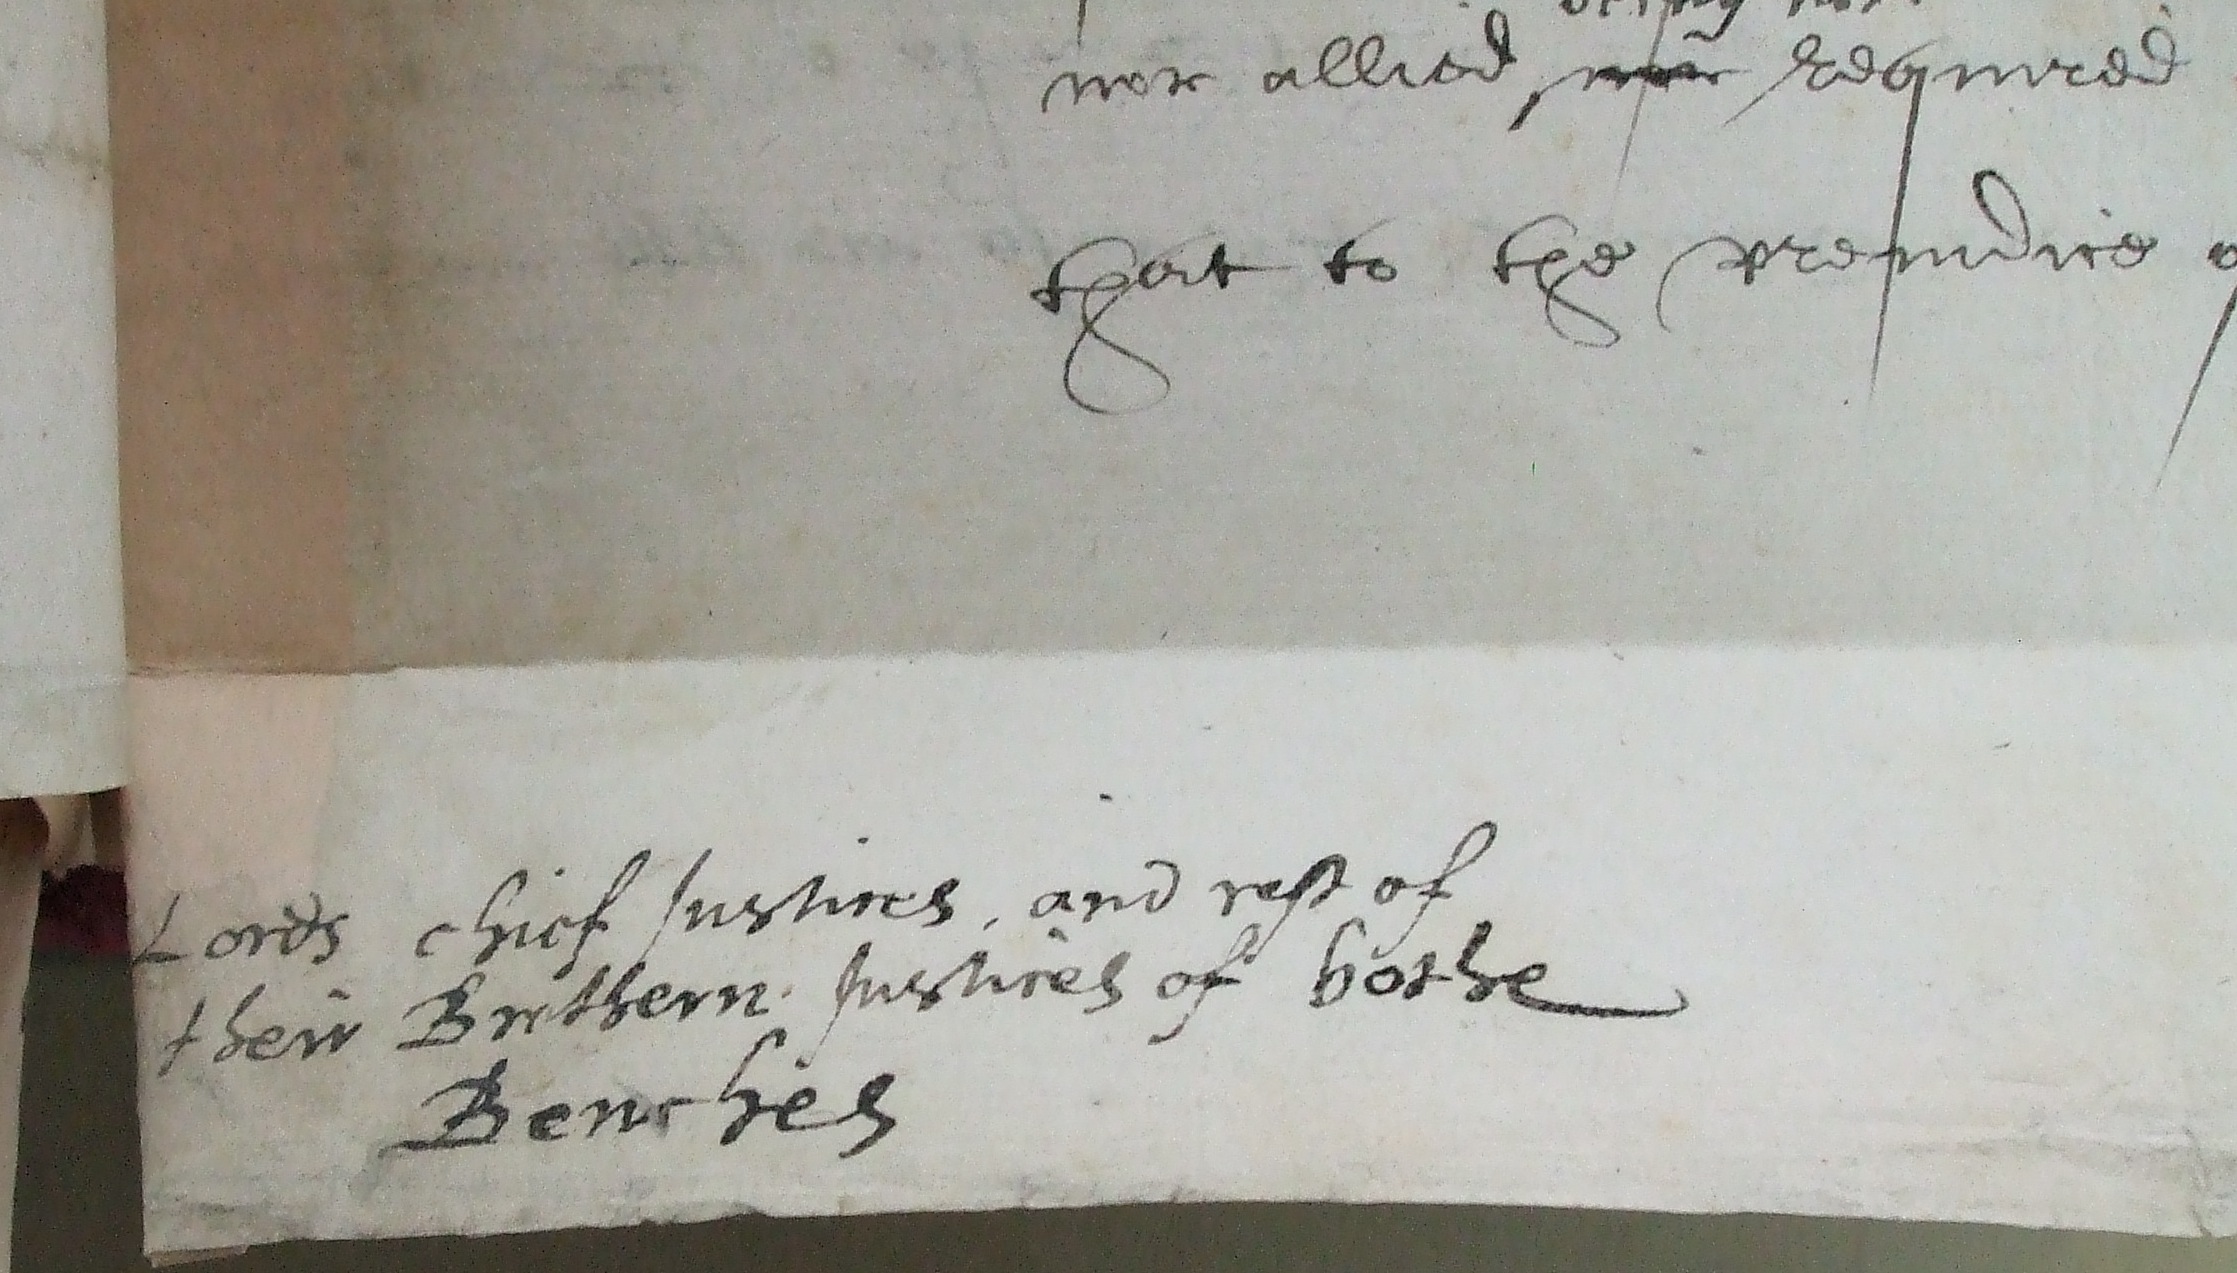 being not
nor allied, nor required
that to the preiudice
Lords chief Justices, and rest of
their Brethern Justices of bothe
Benches